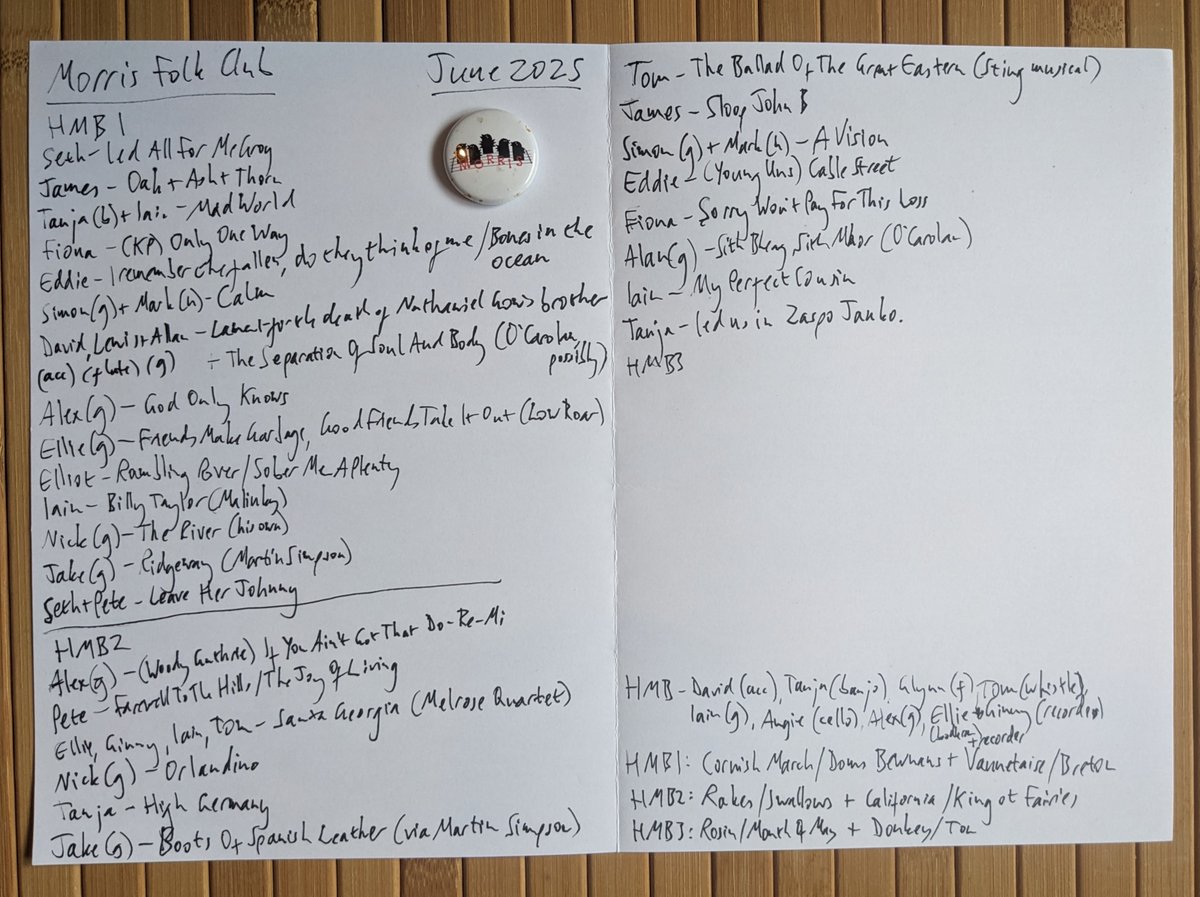 Morris Folk Club
June 2025
MORRIS
HMB1
Seth - Led All For McGroy
James - Oak + Ash + Thorn
Tanja (b) + Iain - Mad World
Fiona - (KP) Only One Way
Eddie - I remember the fallen, do they think of me / Bones in the ocean
Simon (g) + Mark (h) - Calm
David, Lewis + Allan - Lament for the death of Nathaniel Gow's brother
(acc) (flute) (g) + The Separation Of Soul And Body (O'Carolan, possibly)
Alex (g) - God Only Knows
Ellie (g) - Friends Make Garbage, Good Friends Take It Out (Low Roar)
Elliot - Rambling Rover / Sober Me A Plenty
Iain - Billy Taylor (Malinky)
Nick (g) - The River (his own)
Jake (g) - Ridgeway (Martin Simpson)
Seth + Pete - Leave Her Johnny
HMB2
Alex (g) - (Woody Guthrie) If You Ain't Got That Do-Re-Mi
Pete - Farewell To The Hills / The Joy Of Living
Ellie, Ginny, Iain, Tom - Santa Georgia (Melrose Quartet)
Nick (g) - Orlandino
Tanja - High Germany
Jake (g) - Boots Of Spanish Leather (via Martin Simpson)
Tom - The Ballad Of The Great Eastern (Sting musical)
James - Sloop John B
Simon (g) + Mark (h) - A Vision
Eddie - (Young Uns) Cable Street
Fiona - Sorry Won't Pay For This Loss
Alan (g) - Sith Bheag Sith Mhor (O'Carolan)
Iain - My Perfect Cousin
Tanja - led us in Zaspo Janko.
HMB3
HMB - David (acc), Tanja (banjo), Glynn (f), Tom (whistle),
Iain (g), Angie (cello), Alex (g), Ellie + Ginny (recorder)
+ recorder
HMB1: Cornish March / Doms Bewnans + Vannetaise / Breton
HMB2: Rakes / Swallows + California / King of Fairies
HMB3: Rosin / Month of May + Donkey / Tom